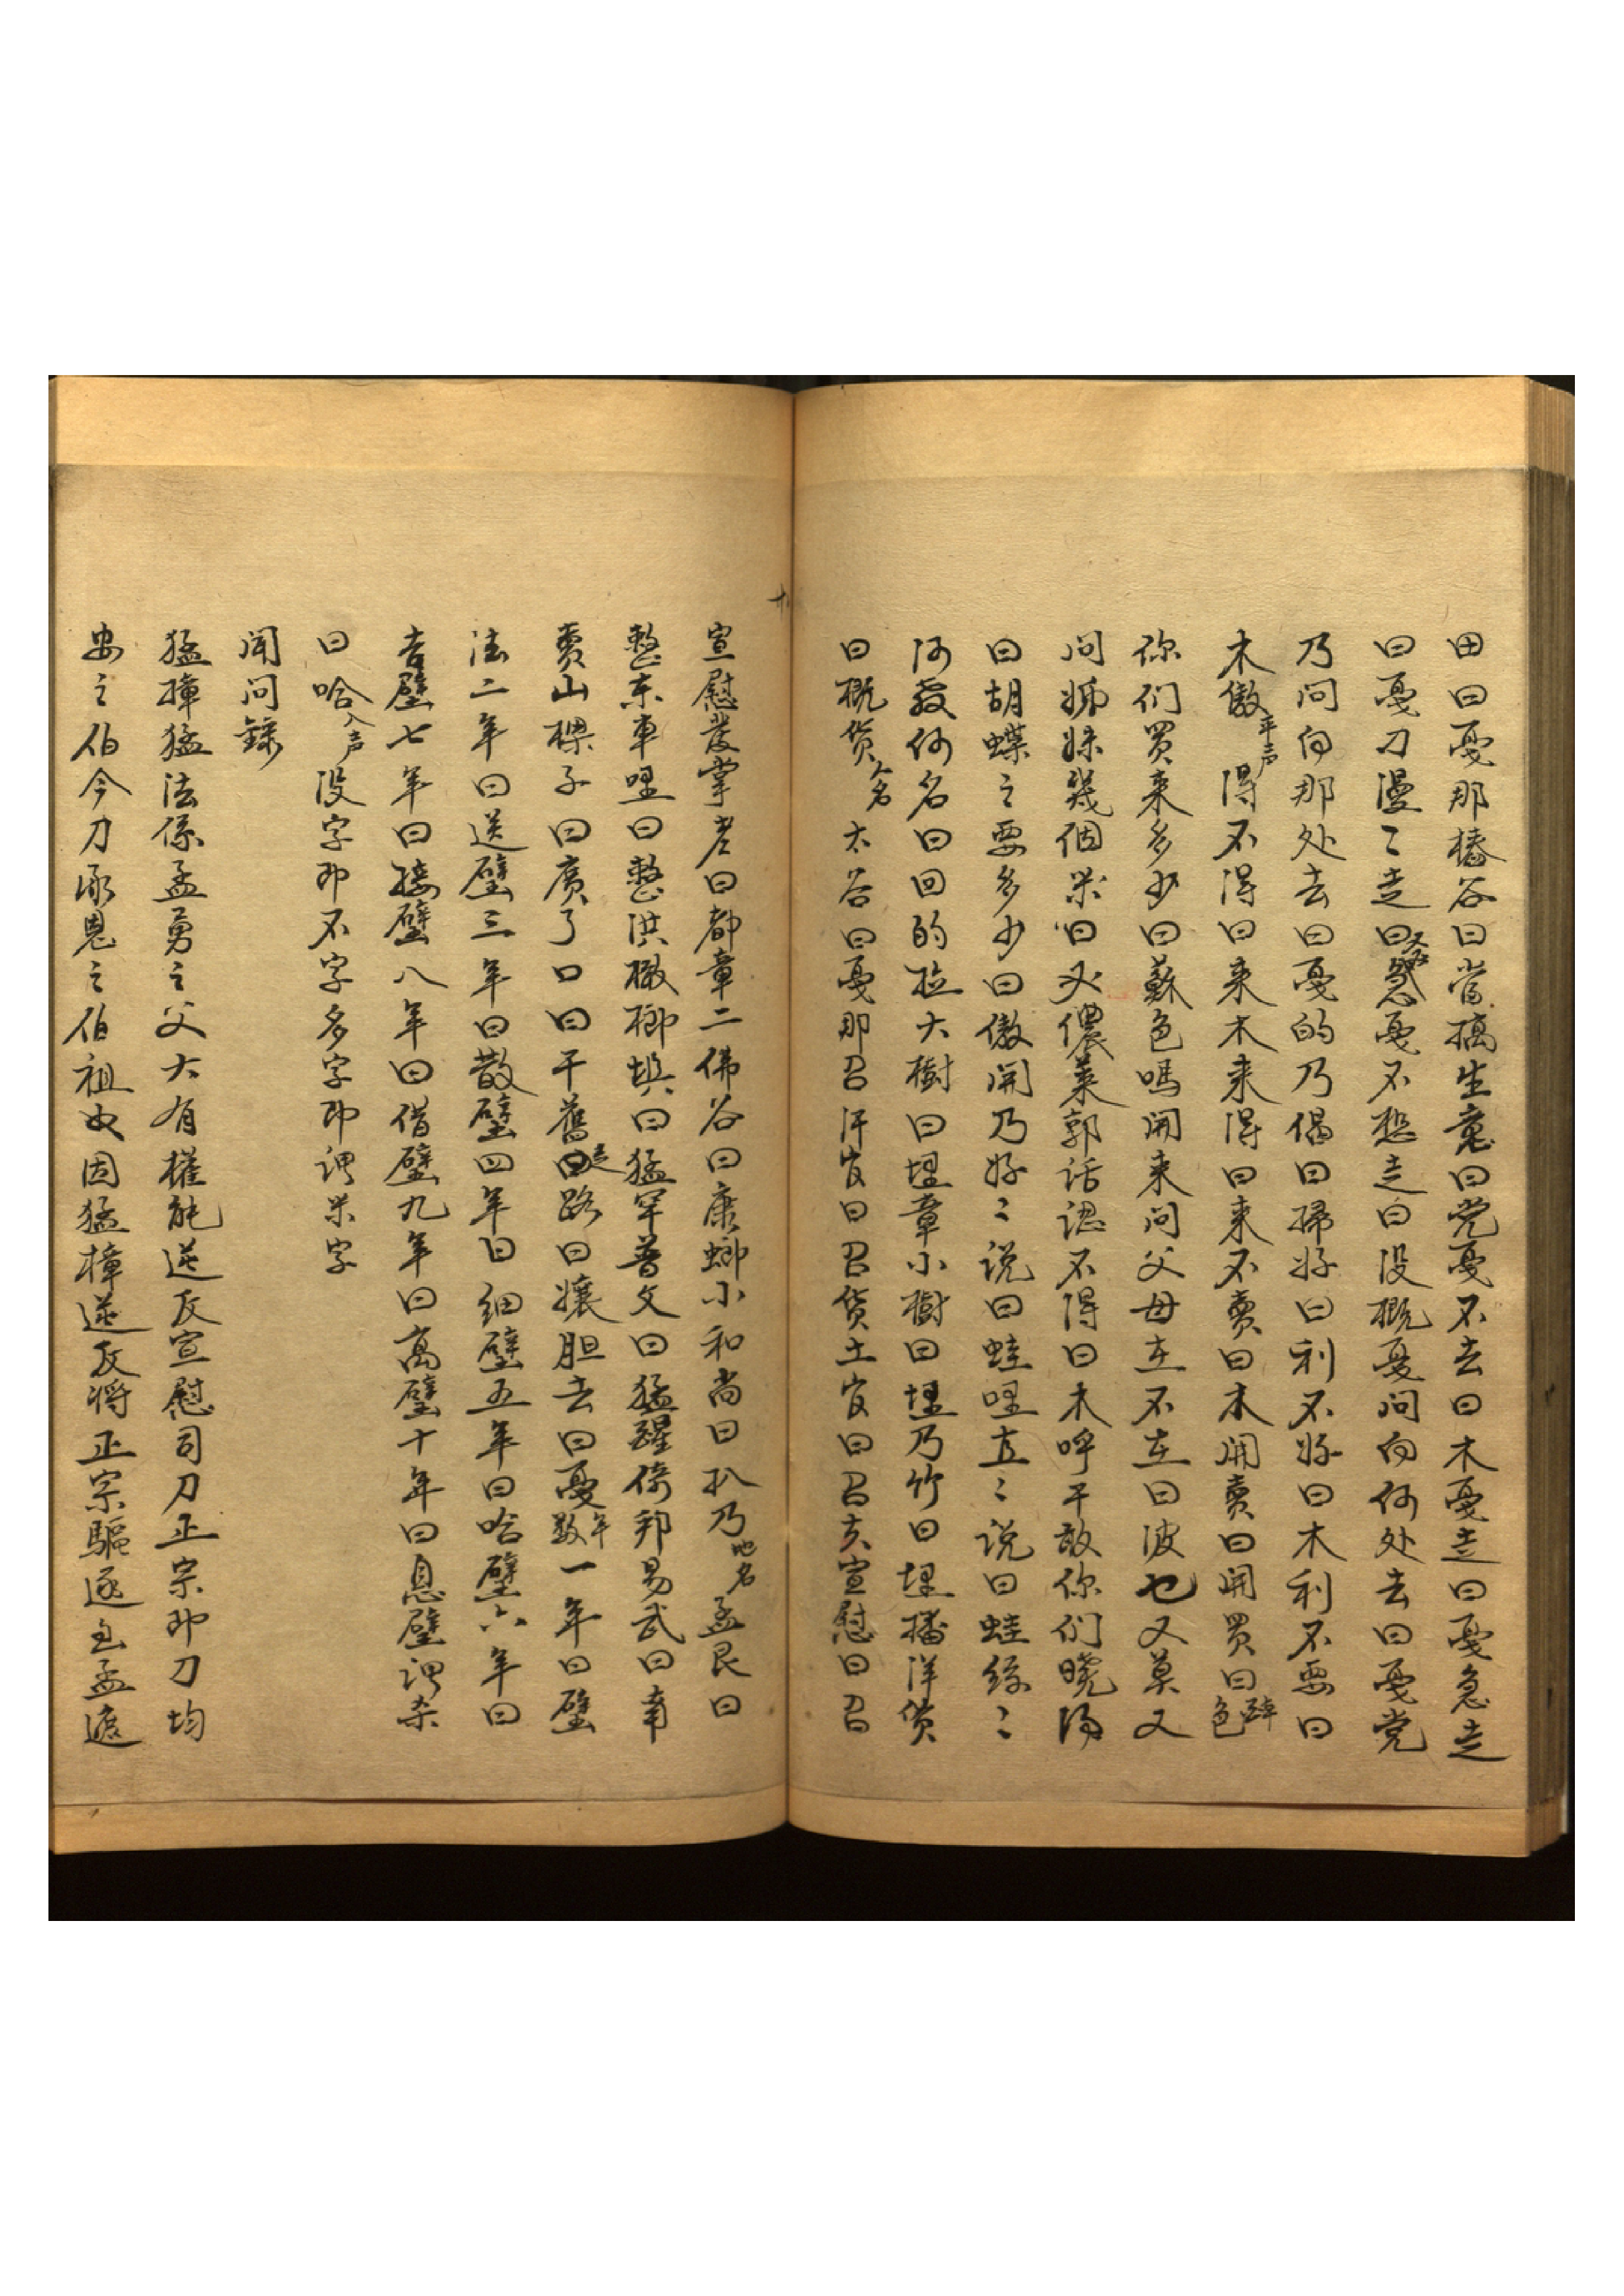 田曰戞那樁谷曰當搞生意曰党戞不去曰木戞走曰戞急走
曰戞刀漫〻走曰忿戞不想走曰没概戞问向何处去曰戞党
乃问向那处去曰戞的乃偈曰掃好曰利不好曰木利不要曰
木傲平声得不得曰来木来得曰来不賣曰木開賣曰開買曰色辞
你们買来多少曰蘇色嗎開来问父母在不在曰波也又莫又
问姊妹幾個米曰必儂菜郭话認不得曰木呼干敢你们曉得
曰胡蝶之要多少曰傲開乃好〻说曰蛙哩直〻说曰蛙絲〻
河教何名曰回的拉大樹曰埋章小樹曰埋乃竹曰埋播洋货
曰概货人名太谷曰戞那召汗官曰召货土官曰召亥宣慰曰召
宣慰發掌老曰都章二佛谷曰康螂小和尚曰扒乃地名孟艮曰
整东車哩曰整洪橄榔埧曰猛罕普文曰猛醒倚邦易武曰青
賣山樑子曰廣了口曰干舊走路曰孃胆去曰戞数年一年曰璧
法二年曰送璧三年曰散璧四年曰细璧五年曰哈璧六年曰
吉璧七年曰接璧八年曰借璧九年曰髙璧十年曰息璧谓杀
曰哈入声没字即不字多字即谓米字
闻问錄
猛撞猛法係孟勇之父大有權能送反宣慰司刀正宗即刀均
安之伯今刀承恩之伯祖也因猛樟送反将正宗驅逐至孟遮